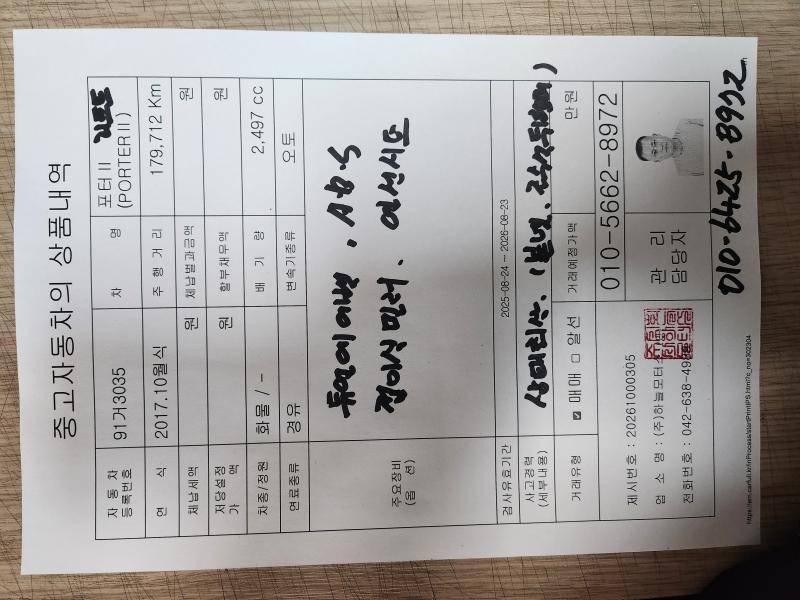 중고자동차의 상품내역
자동차등록번호 91거3035 차명 포터Ⅱ (PORTERⅡ) 리프트
연식 2017.10월식 주행거리 179,712 Km
체납세액 원 체납별과금액 원
저당설정가액 원 할부채무액 원
차종/정원 화물 / - 배기량 2,497 cc
연료종류 경유 변속기종류 오토
주요장비 (옵션)
듀얼에어백, ABS
접이식 밀러, 열선시트
검사유효기간 2025-08-24 ~ 2026-08-23
사고경력 (세부내용) 상태최상.
거래유형 ☑ 매매 □ 알선 거래예정가액 만원
제시번호 : 20261000305
업소명 : (주)하늘모터스
전화번호 : 042-638-49
관리담당자
010-5662-8972
010-6425-8972